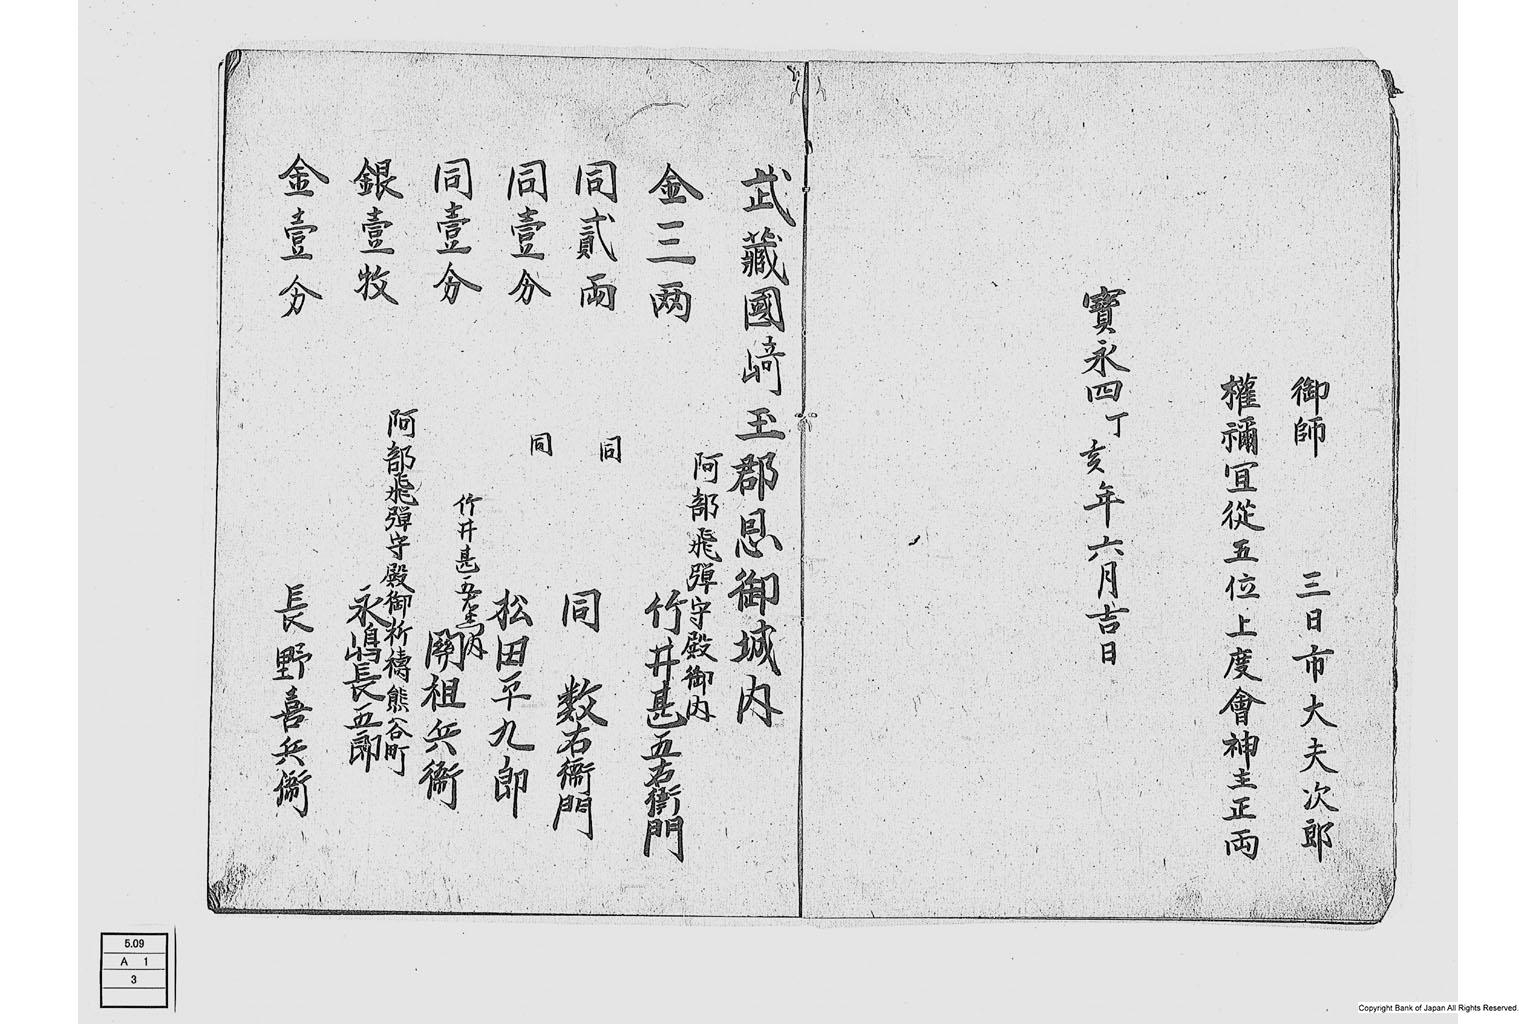 御師　三日市大夫次郎
權禰宜從五位上度會神主正両
寶永四丁亥年六月吉日
武藏國﨑玉郡忍御城内
阿部飛彈守殿御内
金三両　竹井甚五右衛門
同貳両　同　同　数右衛門
同壹分　同　松田平九郎
竹井甚五左衛門内
同壹分　関祖兵衛
阿部飛彈守殿御祈禱熊谷町
銀壹牧　永嶋長五郎
金壹分　長野喜兵衛
5.09
A 1
3
Copyright Bank of Japan All Rights Reserved.